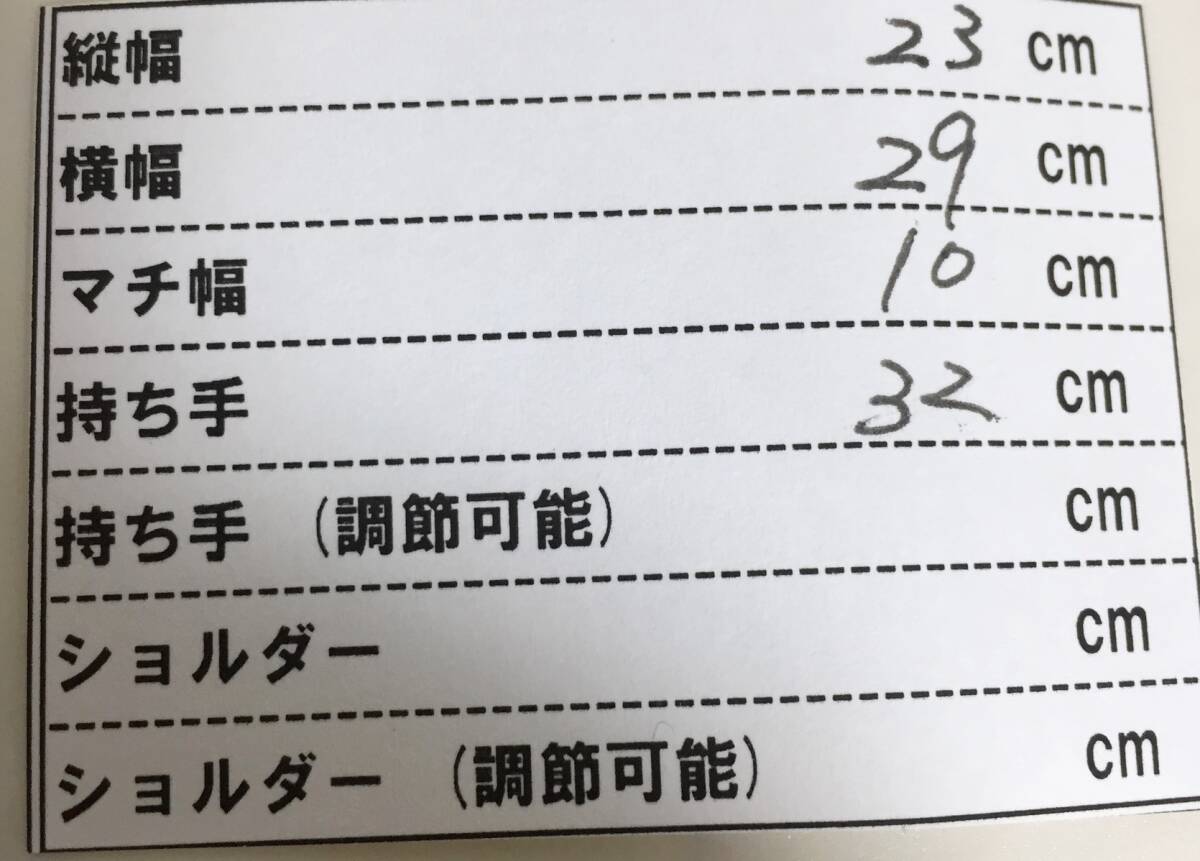 縦幅 23 cm
横幅 29 cm
マチ幅 10 cm
持ち手 32 cm
持ち手 (調節可能) cm
ショルダー cm
ショルダー (調節可能) cm